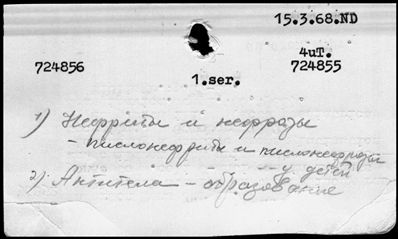 15.3.68.ND
4uT.
724856 724855
1.ser.
1) Нефриты и нефрозы
- пиелонефриты и пиелонефрозы
у детей
2) Антитела - образование